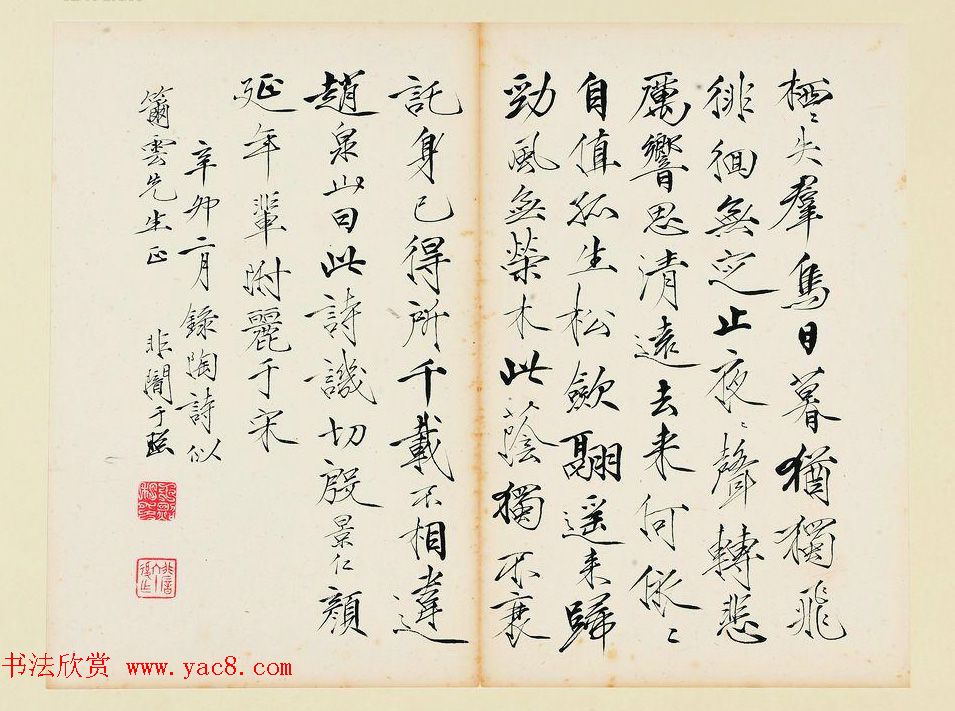 栖〻失羣鳥日暮猶獨飛
徘徊無定止夜〻聲轉悲
厲響思清遠去来何依〻
自值孤生松歛翮遥来歸
勁風無榮木此蔭獨不衰
託身已得所千載不相違
趙泉山曰此詩譏切殷景仁顔
延年輩附麗于宋
辛卯二月錄陶詩似
籋雲先生正 非闇于照
书法欣赏 www.yac8.com